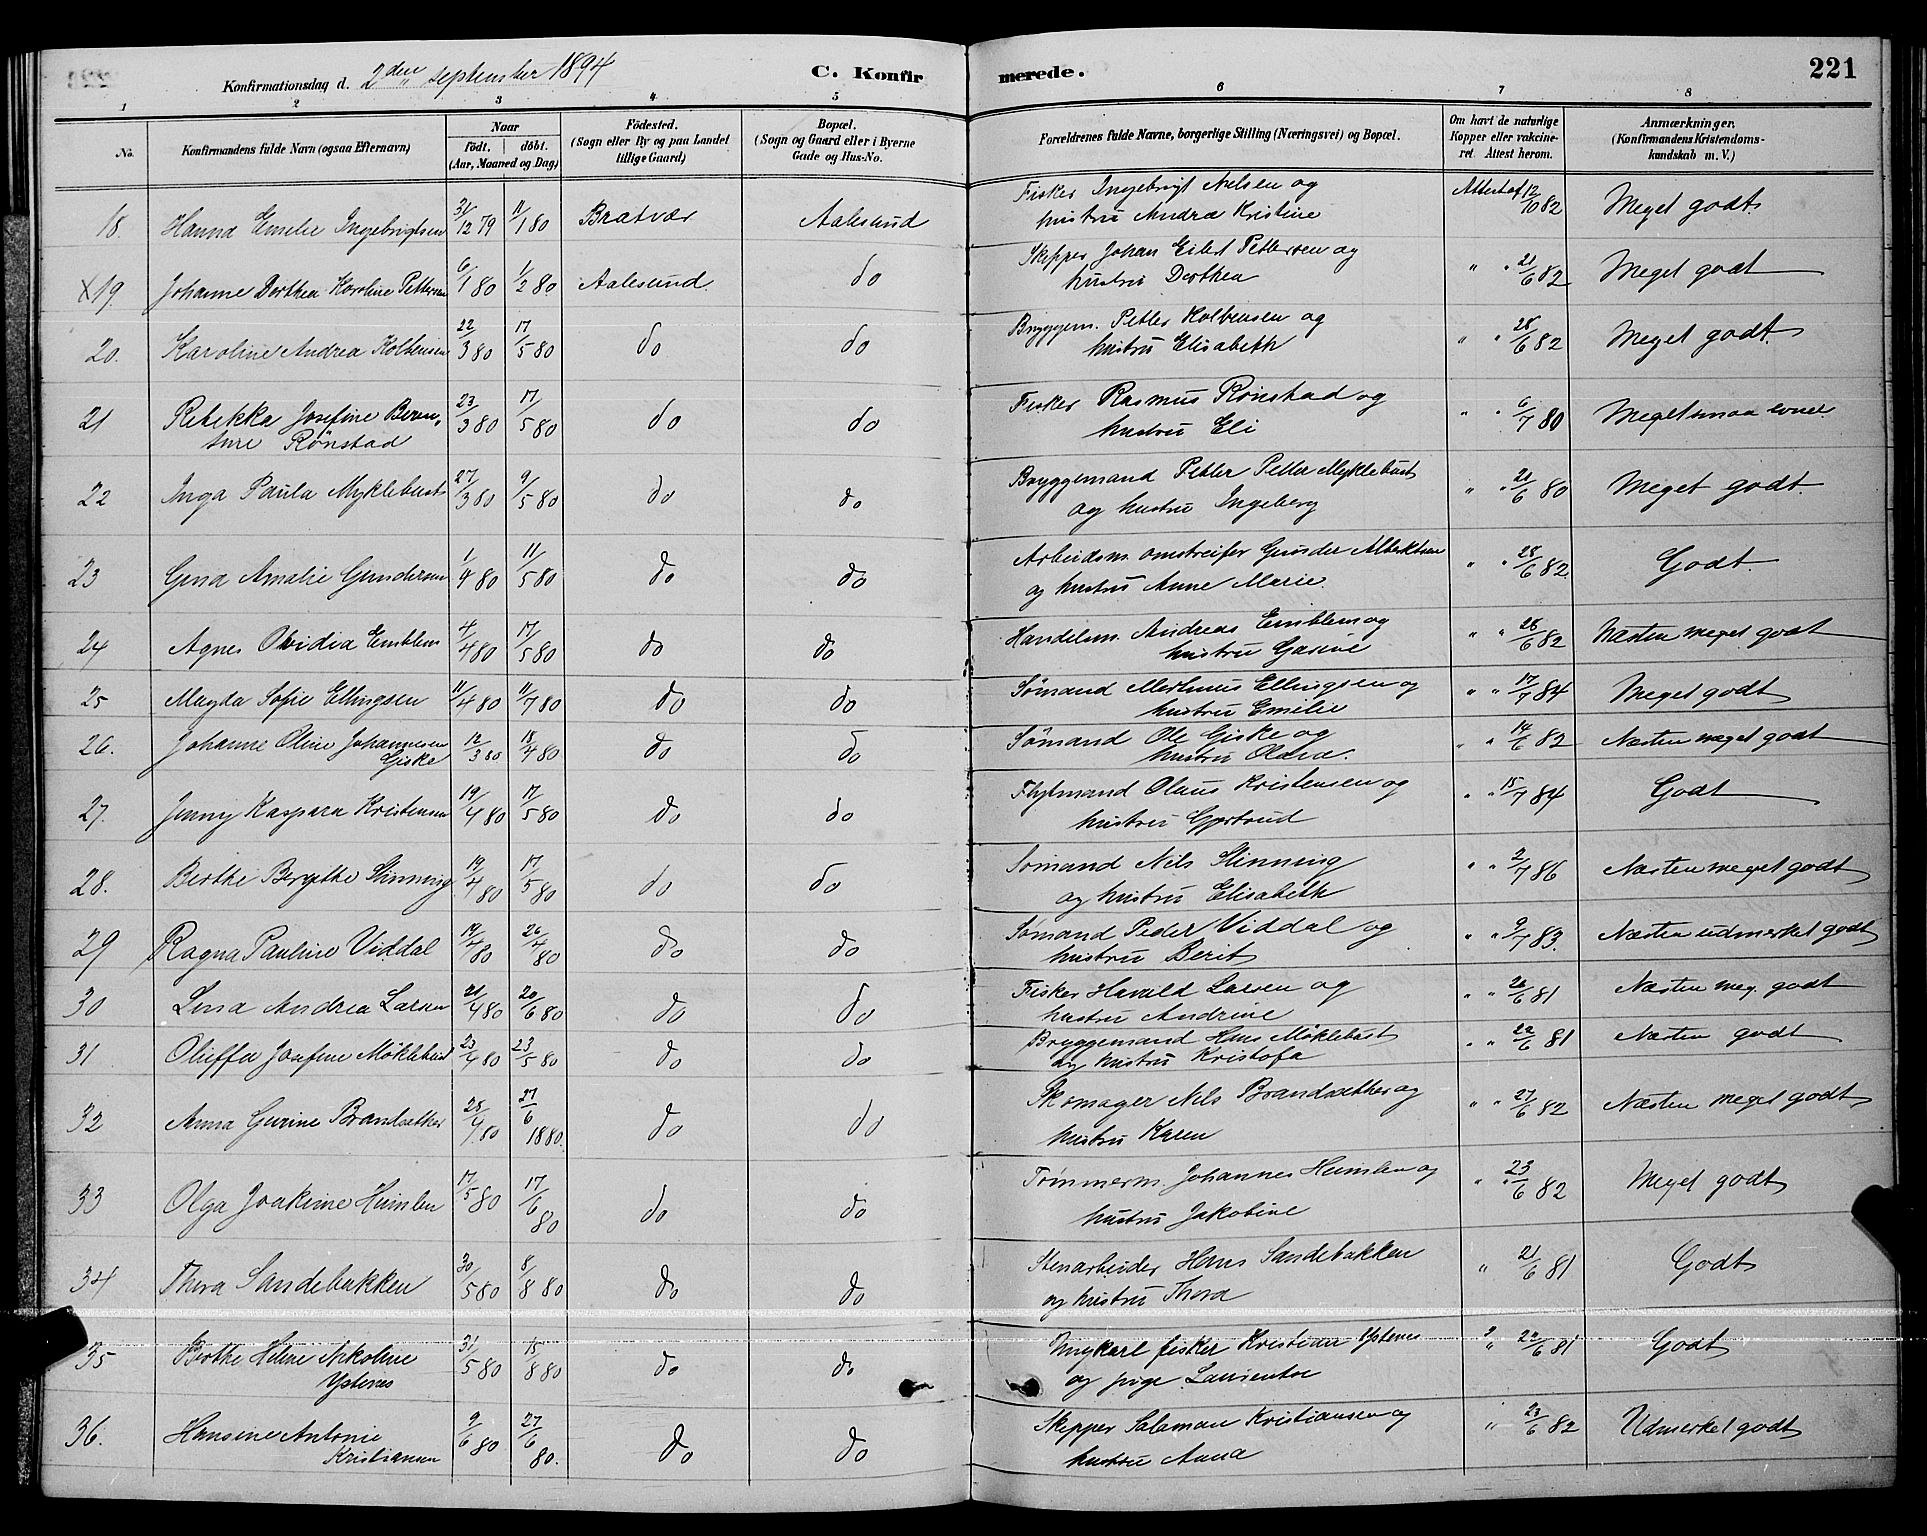 Konfirmationsdag d. 2den september 1894 C. Konfirmerede. 221
1 2 3 4 5 6 7 8
No. Konfirmandens fulde Navn (ogsaa Efternavn) Naar født. døbt. (Aar, Maaned og Dag) Fødested. (Sogn eller By og paa Landet tillige Gaard) Bopæl. (Sogn og Gaard eller i Byerne Gade og Hus-No. Forældrenes fulde Navne, borgerlige Stilling (Næringsvei) og Bopæl. Om havt de naturlige Kopper eller vakcineret. Attest herom. Anmærkninger. (Konfirmandens Kristendomskundskab m. V.)
18. Hanna Emelie Ingebrigtsen 31/12 79 11/1 80 Bratvær Aalesund Fisker Ingebrigt Nelsen og Attest af 12/10 82 Meget godt
hustru Andrea Kristine
x19 Johanne Dorthea Karoline Pettersen 6/1 80 1/2 80 Aalesund. do Skipper Johan Eilert Pettersen og " " 21/6 82 Meget godt
hustru Dorthea
20. Karoline Andrea Kolbensen 22/3 80 17/5 80 do do Bryggem. Petter Kolbensen og " " 28/6 82 Meget godt.
hustru Elisabeth
21 Rebekka Josefine Beren- 23/3 80 17/5 80 do do Fisker Rasmus Rönstad og " " 6/7 80 Meget smaa evner
tine Rönstad hustru Eli
22 Inga Paula Myklebust 27/3 80 9/5 80 do do Bryggemand Petter Petter Myklebust " " 21/6 80 Meget godt.
og hustru Ingeberg
23 Gina Amalie Gundersen 1/4 80 11/5 80 do do Arbeidsm. omstreifer Gunder Albertsen " " 28/6 82 Godt.
og hustru Anne Marie
24 Agnes Ovidia Emblem 4/4 80 17/5 80 do do Handelsm. Andreas Emblem og " " 28/6 82 Næsten meget godt
hustru Gasine
25 Magda Sofie Ellingsen 11/4 80 11/7 80 do do Sømand Marthinus Ellingsen og " " 17/7 84 Meget godt
hustru Emilie
26. Johanne Oline Johannesen 12/3 80 18/4 80 do do Sømand Ole Giske og " " 14/6 82 Næsten meget godt
Giske hustru Olava.
27. Jenny Kaspara Kristensen 19/4 80 17/5 80 do do Flytmand Olaus Kristensen og " " 15/7 84 Godt
hustru Gjertrud
28. Berthe Bergitte Slinning 19/4 80 17/5 80 do do Sømand Nils Slinning " " 2/7 86 Næsten meget godt
og hustru Elisabeth
29 Ragna Pauline Viddal 19/4 80 26/4 80 do do Sømand Peder Viddal og " " 9/7 83. Næsten udmerket godt
hustru Berit
30 Lina Andrea Larsen 21/4 80 20/6 80 do do Fisker Havald Larsen og " " 26/6 81 Næsten meg. godt
hustru Andrine
31 Oluffa Josefine Møklebust 23/4 80 23/5 80 do do Bryggemand Hans Møklebust " " 22/6 81 Næsten godt
og hustru Kristofa
32 Anna Gurine Brandsether 28/4 80 27/6 1880. do do Skomager Nils Brandsether og " " 27/6 82 Næsten meget godt
hustru Karen
33 Olga Joakime Humlen 17/5 80 17/6 80 do do Tømmerm. Johannes Humlen og " " 23/6 82 Meget godt
hustru Jakobine
34 Thora Sandebakken 30/5 80 8/8 80 do do Stenarbeider Hans Sandebakken " 21/6 81 Godt
og hustru Thora
35 Berthe Heline Nikoline 31/5 80 15/8 80 do do Ungkarl fisker Kristian Ystenes " " 22/6 81 Godt
Ystenes og pige Laurentse
36. Hansine Antonie 9/6 80 27/6 80. do do Skipper Salamon Kristiansen og " 23/6 82 Udmerket godt
Kristiansen hustru Anna